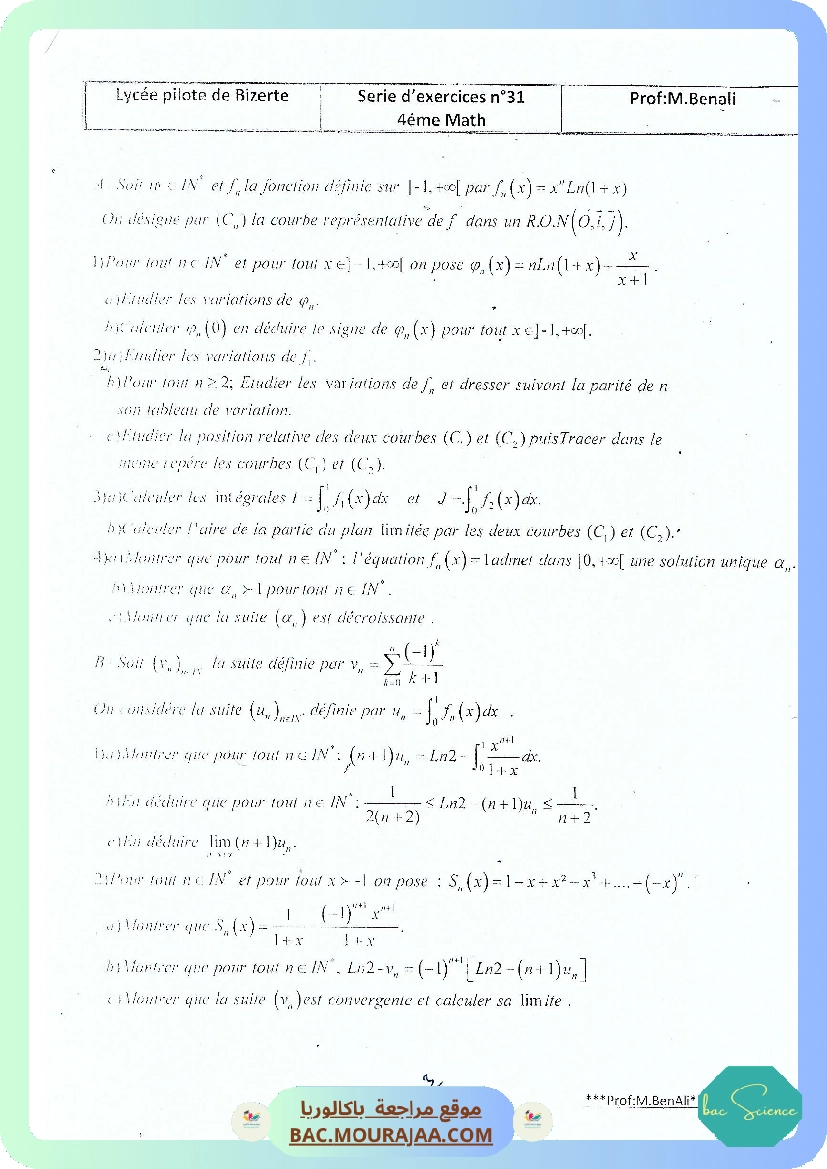 Lycée pilote de Bizerte
Serie d'exercices n°31
4éme Math
Prof:M.Benali
A- Soit n ∈ IN* et fₙ la fonction définie sur ]-1,+∞[ par fₙ(x) = xⁿLn(1+x)
On désigne par (Cₙ) la courbe représentative de f dans un R.O.N(O,i⃗,j⃗).
1)Pour tout n ∈ IN* et pour tout x ∈]-1,+∞[ on pose φₙ(x) = nLn(1+x)+x/(x+1).
a)Etudier les variations de φₙ.
b)Calculer φₙ(0) en déduire le signe de φₙ(x) pour tout x ∈]-1,+∞[.
2)a)Etudier les variations de f₁.
b)Pour tout n ≥ 2; Etudier les variations de fₙ et dresser suivant la parité de n
son tableau de variation.
c)Etudier la position relative des deux courbes (C₁) et (C₂)puisTracer dans le
meme repére les courbes (C₁) et (C₂).
3)a)Calculer les intégrales I = ∫₀¹ f₁(x)dx et J = ∫₀¹ f₂(x)dx.
b)Calculer l'aire de la partie du plan limitée par les deux courbes (C₁) et (C₂).
4)a)Montrer que pour tout n ∈ IN* ; l'équation fₙ(x) = 1admet dans ]0,+∞[ une solution unique αₙ.
b)Montrer que αₙ > 1 pour tout n ∈ IN*.
c)Montrer que la suite (αₙ) est décroissante .
B- Soit (vₙ)n∈IN la suite définie par vₙ = Σₖ₌₀ⁿ (-1)ᵏ/(k+1)
On considére la suite (uₙ)n∈IN* définie par uₙ = ∫₀¹ fₙ(x)dx .
1)a)Montrer que pour tout n ∈ IN* ; (n+1)uₙ = Ln2 - ∫₀¹ xⁿ⁺¹/(1+x) dx.
b)En déduire que pour tout n ∈ IN* ; 1/(2(n+2)) ≤ Ln2 - (n+1)uₙ ≤ 1/(n+2).
c)En déduire lim (n+1)uₙ.
2)Pour tout n ∈ IN* et pour tout x > -1 on pose : Sₙ(x) = 1-x+x²-x³+....+(-x)ⁿ.
a)Montrer que Sₙ(x) = 1/(1+x) - (-1)ⁿ⁺¹xⁿ⁺¹/(1+x).
b)Montrer que pour tout n ∈ IN*, Ln2-vₙ = (-1)ⁿ⁺¹[Ln2-(n+1)uₙ]
c)Montrer que la suite (vₙ)est convergente et calculer sa limite .
***Prof:M.BenAli*
bac Science
موقع مراجعة باكالوريا
BAC.MOURAJAA.COM